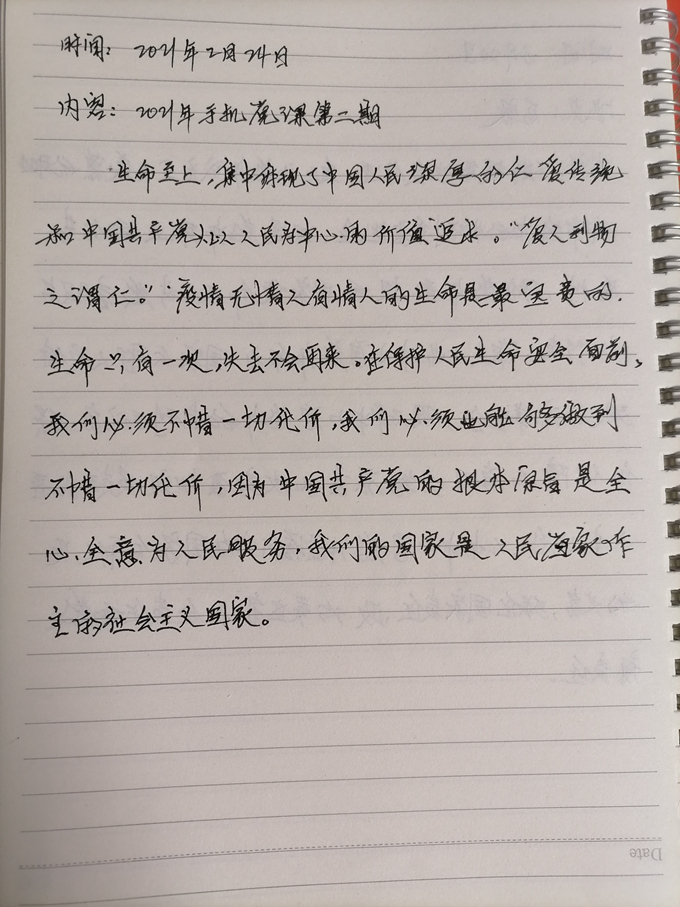 时间：2021年2月24日
内容：2021年手机党课第二期
生命至上，集中体现了中国人民深厚的仁爱传统
和中国共产党人以人民为中心的价值追求。“爱人利物
之谓仁。”疫情无情人有情人的生命是最宝贵的，
生命只有一次，失去不会再来。在保护人民生命安全面前，
我们必须不惜一切代价，我们必须也能够做到
不惜一切代价，因为中国共产党的根本宗旨是全
心全意为人民服务，我们的国家是人民当家作
主的社会主义国家。
Date